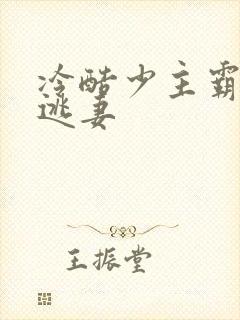 冷酷少主霸
逃妻
王振堂